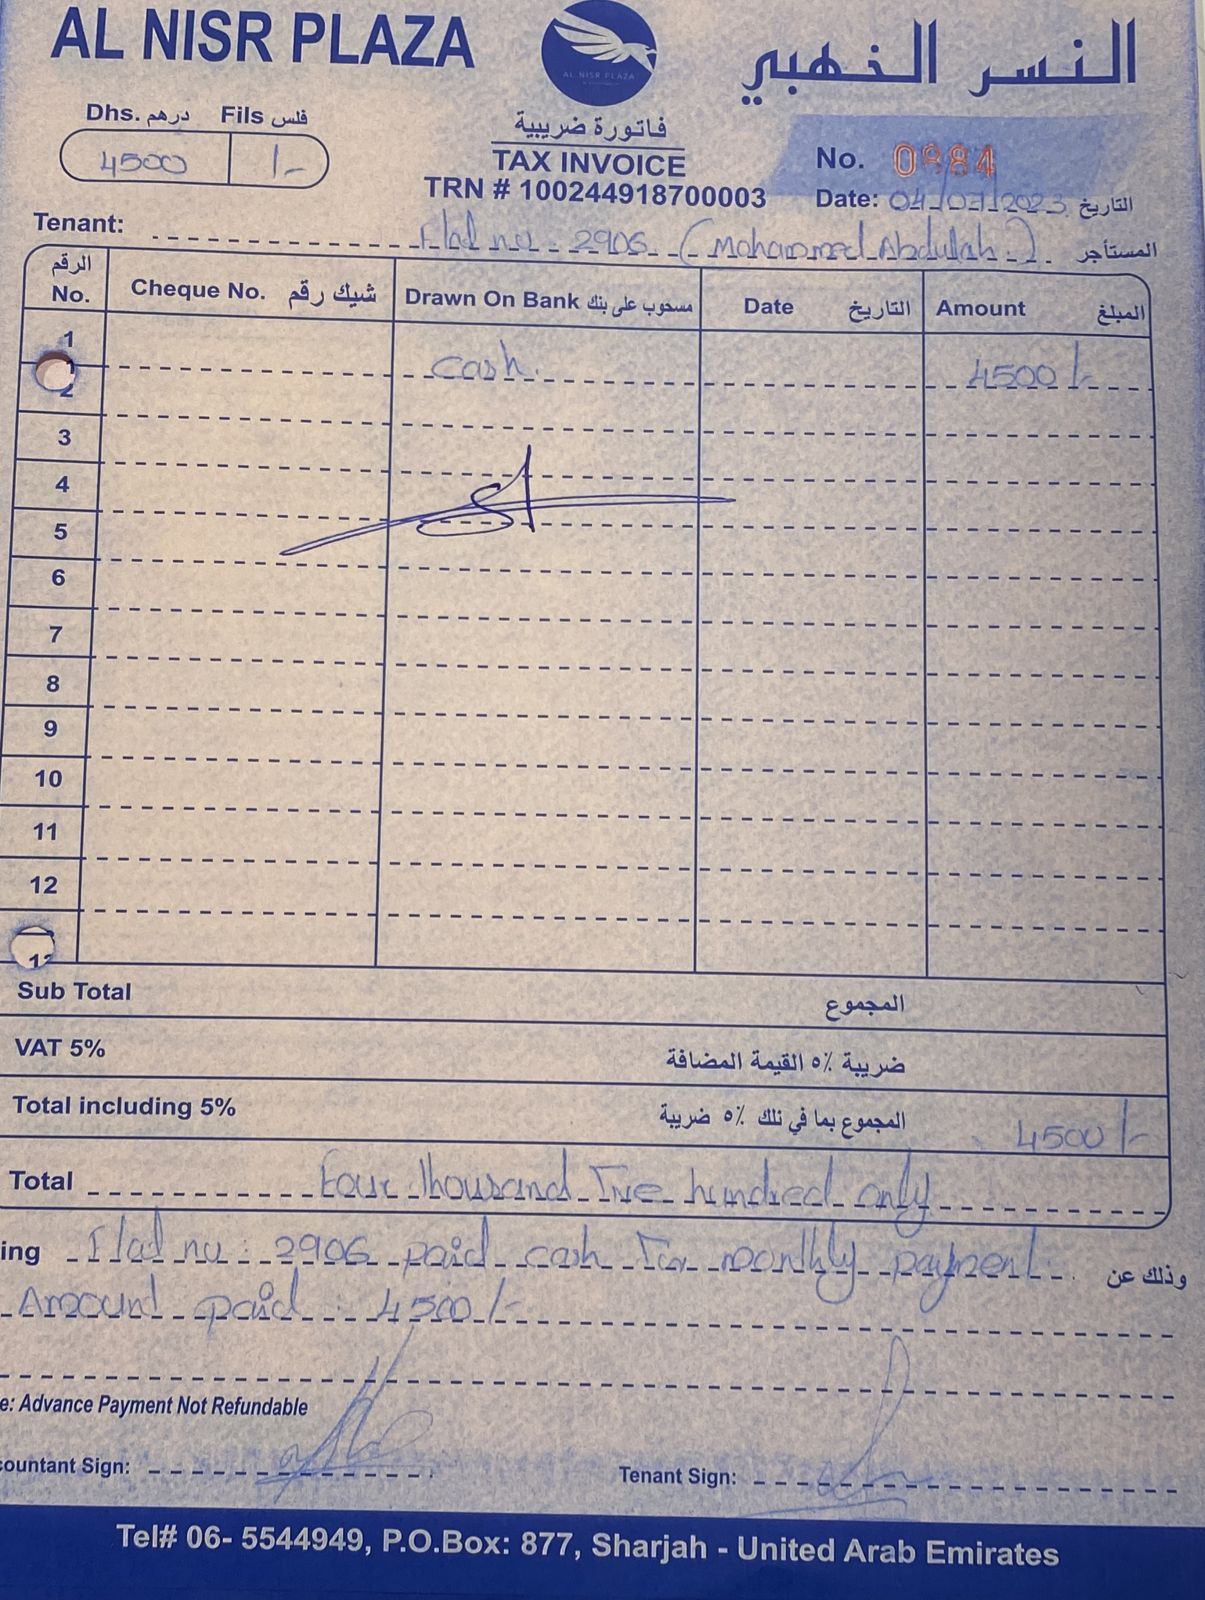 AL NISR PLAZA
النسر الذهبي
AL NISR PLAZA
Dhs. درهم Fils فلس
4500 /-
فاتورة ضريبية
TAX INVOICE
TRN # 100244918700003
No. 0884
Date: 04/07/2023 التاريخ
Tenant: Flad no: 2906 (Mohammed Abdullah) المستأجر
الرقم No. Cheque No. شيك رقم Drawn On Bank مسحوب على بنك Date التاريخ Amount المبلغ
1
cash. 4500/-
2
3
4
5
6
7
8
9
10
11
12
Sub Total المجموع
VAT 5% ضريبة ٥٪ القيمة المضافة
Total including 5% المجموع بما في نلك ٥٪ ضريبة 4500/-
Total Four thousand Five hundred only
ing Flad no: 2906 paid cash For monthly payment. وذلك عن
Amount paid: 4500/-
e: Advance Payment Not Refundable
countant Sign:
Tenant Sign:
Tel# 06- 5544949, P.O.Box: 877, Sharjah - United Arab Emirates